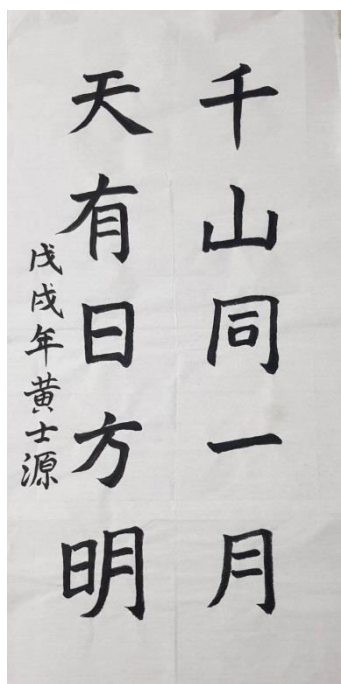 千山同一月
天有日方明
戊戌年黄士源